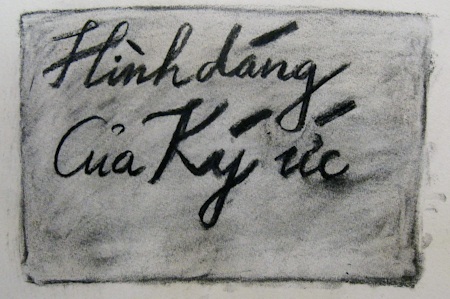 Hình dáng
Của Ký ức